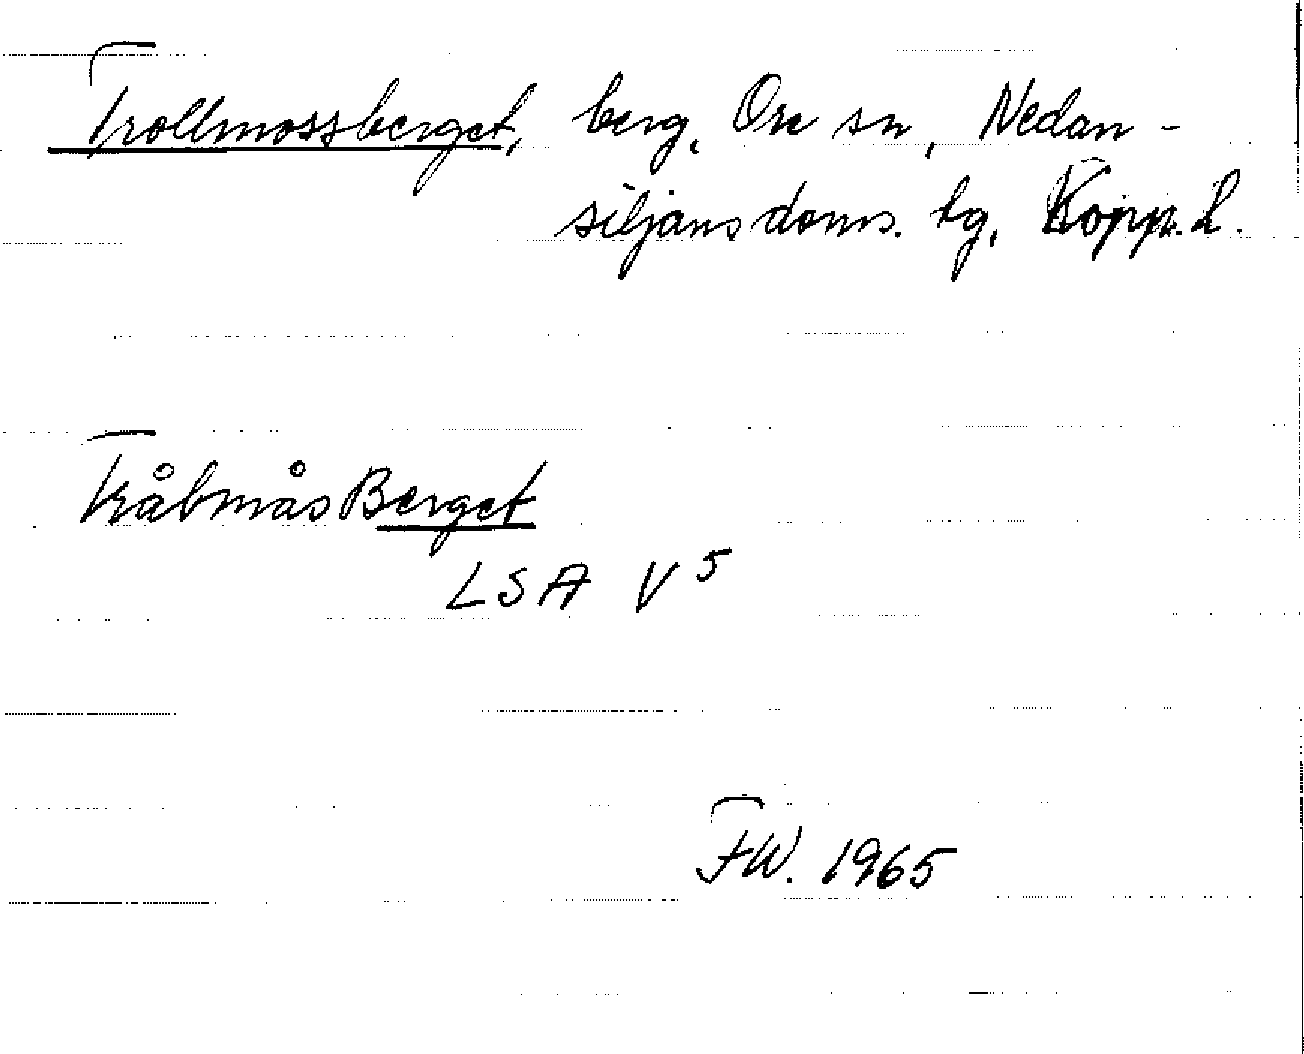 Trollmossberget, berg, Ore sn, Nedan-
siljans doms. tg, Kopp. L.
Tråbmås Berget
LSA V 5
FW. 1965